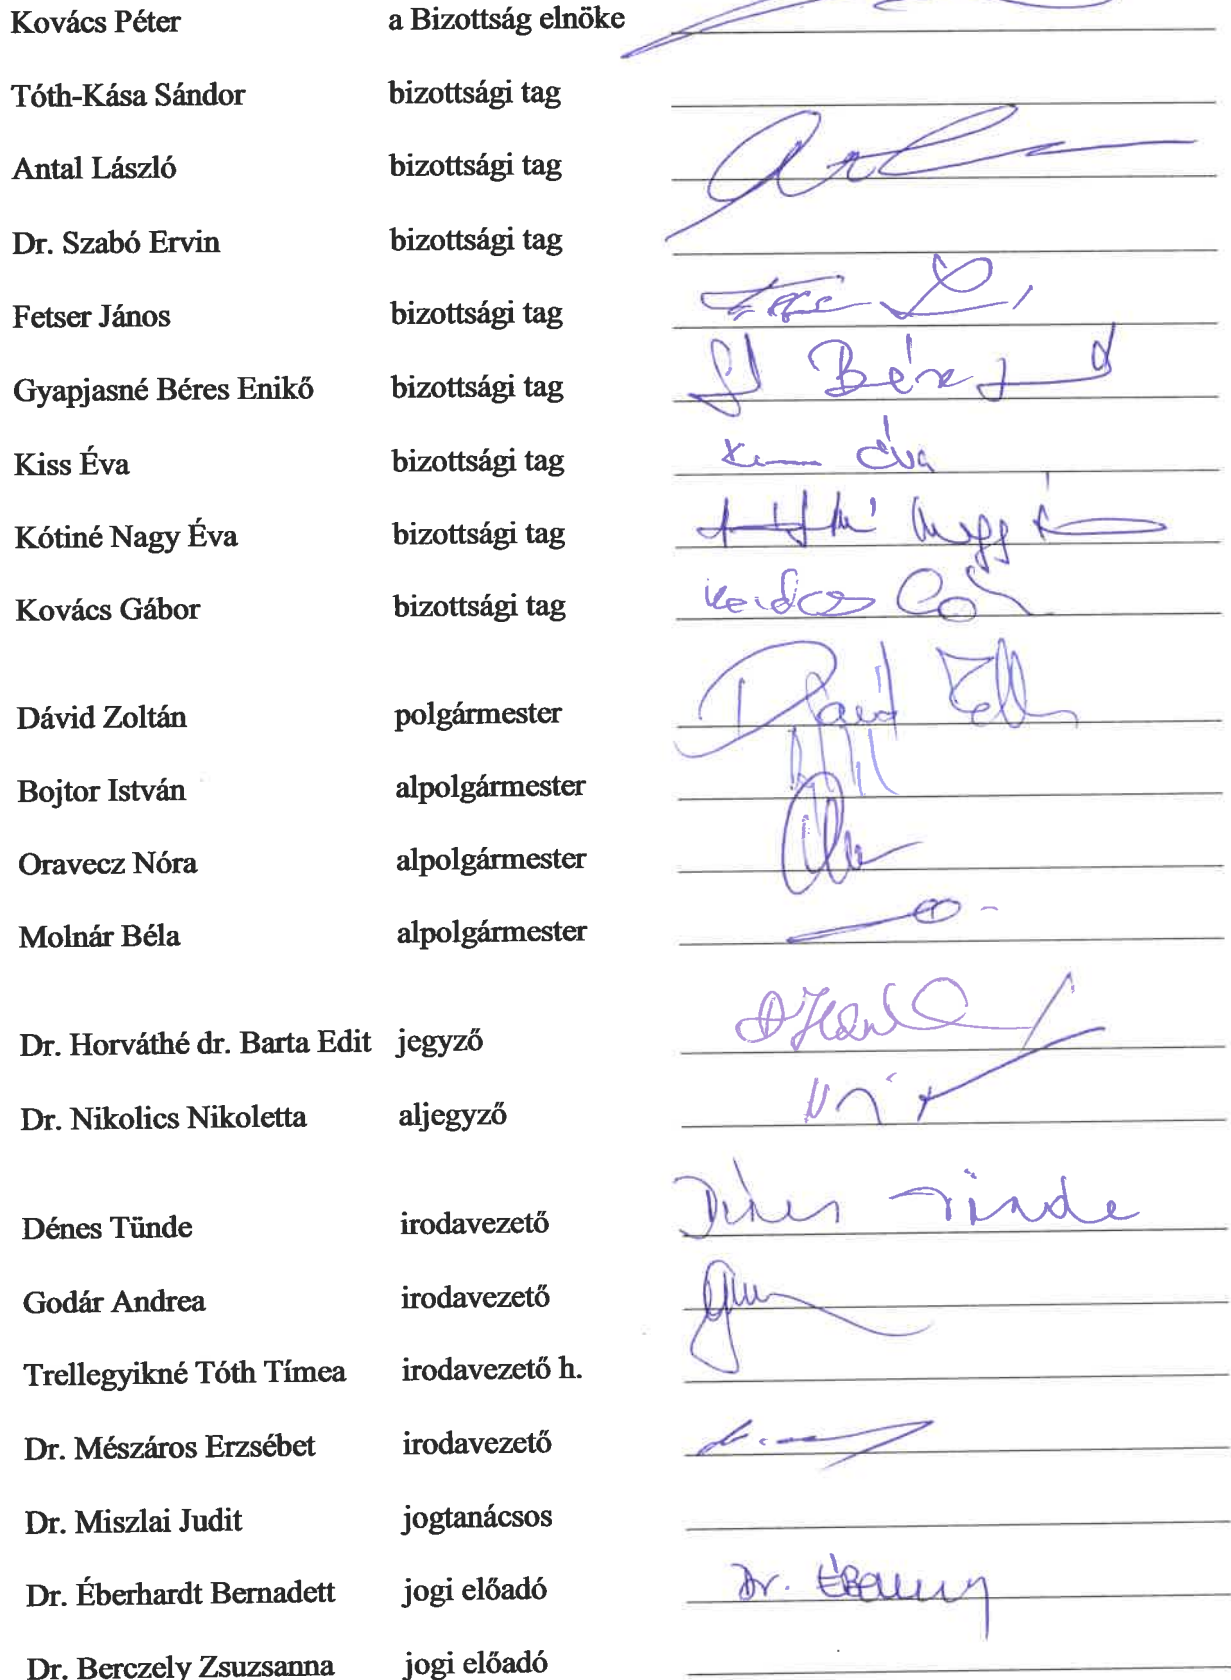 Kovács Péter a Bizottság elnöke
Tóth-Kása Sándor bizottsági tag
Antal László bizottsági tag
Dr. Szabó Ervin bizottsági tag
Fetser János bizottsági tag
Gyapjasné Béres Enikő bizottsági tag
Kiss Éva bizottsági tag Éva
Kótiné Nagy Éva bizottsági tag
Kovács Gábor bizottsági tag
Dávid Zoltán polgármester Dávid
Bojtor István alpolgármester
Oravecz Nóra alpolgármester
Molnár Béla alpolgármester
Dr. Horváthé dr. Barta Edit jegyző
Dr. Nikolics Nikoletta aljegyző
Dénes Tünde irodavezető Dénes Tünde
Godár Andrea irodavezető
Trellegyikné Tóth Tímea irodavezető h.
Dr. Mészáros Erzsébet irodavezető
Dr. Miszlai Judit jogtanácsos
Dr. Éberhardt Bernadett jogi előadó Dr.
Dr. Berczely Zsuzsanna jogi előadó